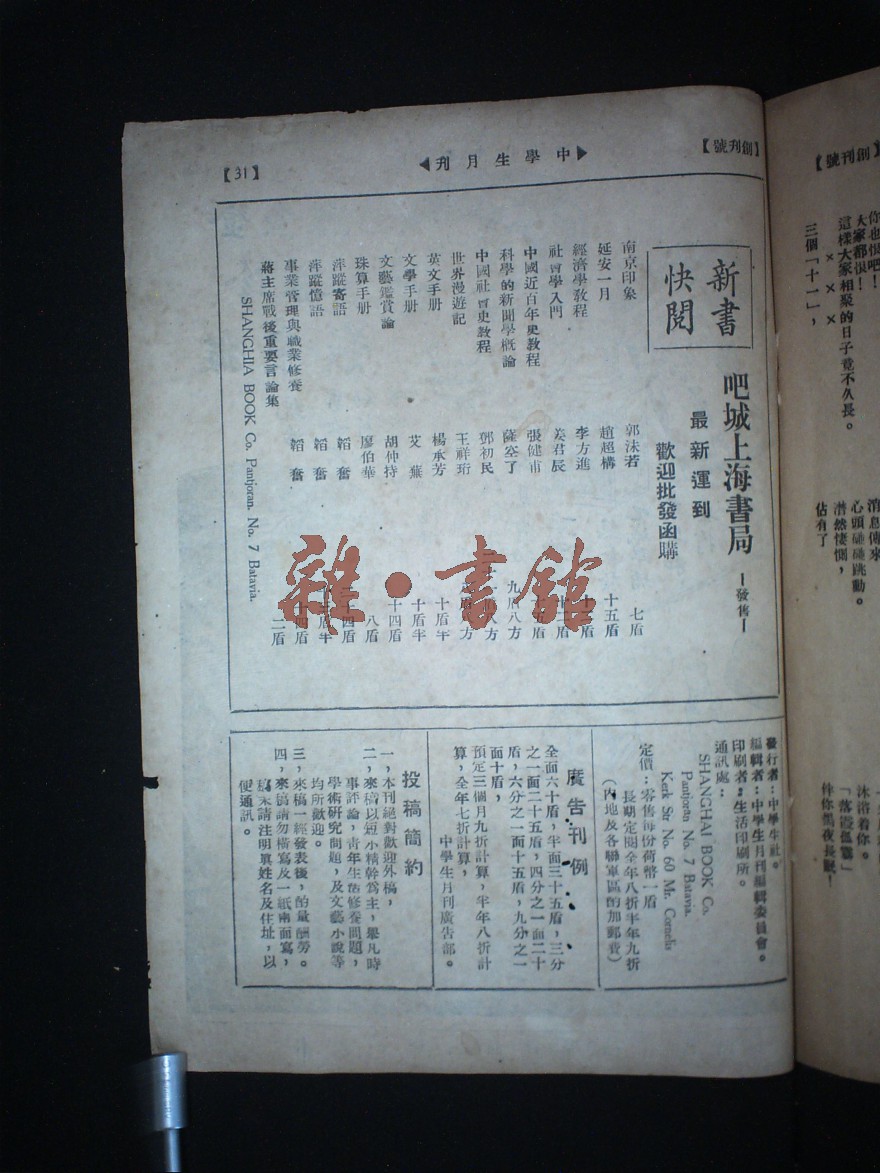 【創刊號】
▶中學生月刊◀
【31】
新書
快閱
吧城上海書局
—發售—
最新運到
歡迎批發函購
南京印象 郭沫若 七盾
延安一月 趙超構 十五盾
經濟學教程 李方進
社會學入門 姜君辰
中國近百年史教程 張健甫
科學的新聞學概論 薩空了 九盾八方
中國社會史教程 鄧初民
世界漫遊記 王祥珩
英文手册 楊承芳 十盾半
文學手册 艾蕪 十盾半
文藝鑑賞論 胡仲持 十四盾
珠算手册 廖伯華 八盾
萍蹤寄語 韜奮
萍蹤憶語 韜奮
事業管理與職業修養 韜奮
蔣主席戰後重要言論集 二盾
SHANGHIA BOOK Co. Pantjoran. No. 7 Batavia.
雜·書館
發行者：中學生社。
編輯者：中學生月刊編輯委員會。
印刷者：生活印刷所。
通訊處：
SHANGHAI BOOK Co.
Pantjoran No. 7 Batavia.
Kerk Str No. 60 Mr. Cornelis
定價：零售每份荷幣一盾
長期定閱全年八折半年九折
（內地及各聯軍區酌加郵費）
廣告刊例
全面六十盾，半面三十五盾，三分
之一面二十五盾，四分之一面二十
盾，六分之一面十五盾，九分之一
面十盾，
預定三個月九折計算，半年八折計
算，全年七折計算，
中學生月刊廣告部。
投稿簡約
一，本刊絕對歡迎外稿，
二，來稿以短小精幹為主，舉凡時
事評論，青年生活修養問題，
學術研究問題，及文藝小說等
均所歡迎。
三，來稿一經發表後，酌量酬勞。
四，來稿請勿橫寫及一紙兩面寫，
稿末請注明真姓名及住址，以
便通訊。
【創刊號】
你也恨吧！
大家都恨！
這樣大家相聚的日子竟不久長。
× × ×
三個「十一」，
消息傳來
心頭碰碰跳動。
潸然悽惻，
佔有了
沐浴着你。
伴你黑夜長眠！